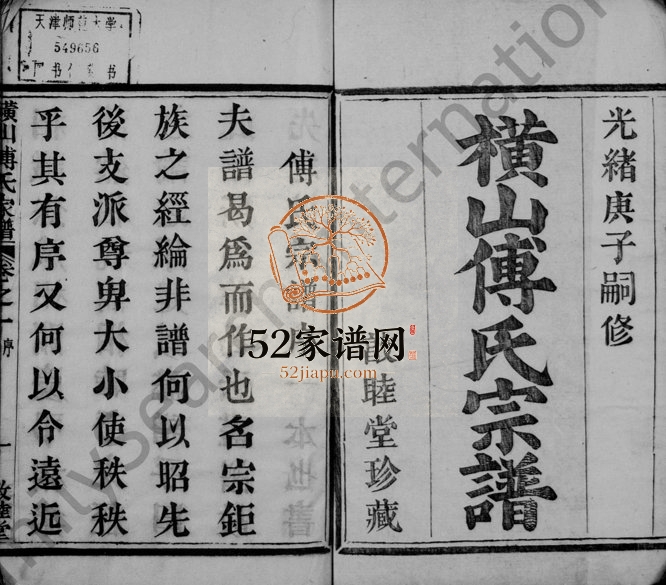 光緒庚子嗣修
橫山傅氏宗譜
敦睦堂珍藏
傅氏宗譜
夫譜曷爲而作也名宗鉅
族之經綸非譜何以昭先
後支派尊卑大小使秩秩
乎其有序又何以令遠近
橫山傅氏家譜 卷之一 序 一 敦睦堂
天津師範大學
549656
图书馆藏书
52家谱网
52jiapu.com
FamilySearch International